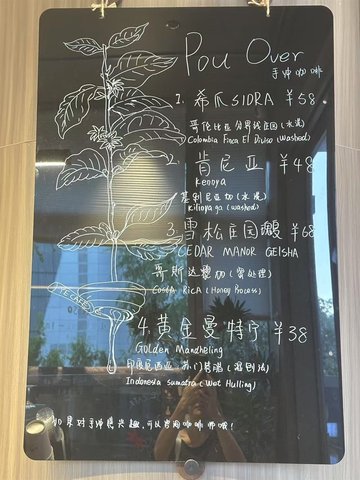 Pou Over
手冲咖啡
1. 希爪SIDRA ¥58
哥伦比亚 分界线庄园(水洗)
Colombia Finca El Diviso (washed)
2. 肯尼亚 ¥48
Kennya
基利尼亚加(水洗)
Kilinyaga (washed)
3. 雪松庄园瑰夏 ¥68
CEDAR MANOR GEISHA
哥斯达黎加(蜜处理)
Costa RicA (Honey Process)
4. 黄金曼特宁 ¥38
Golden Mandheling
印度尼西亚 苏门答腊(湿刨法)
Indonesia sumatra (Wet Hulling)
如果对手冲感兴趣,可以咨询咖啡师哦!